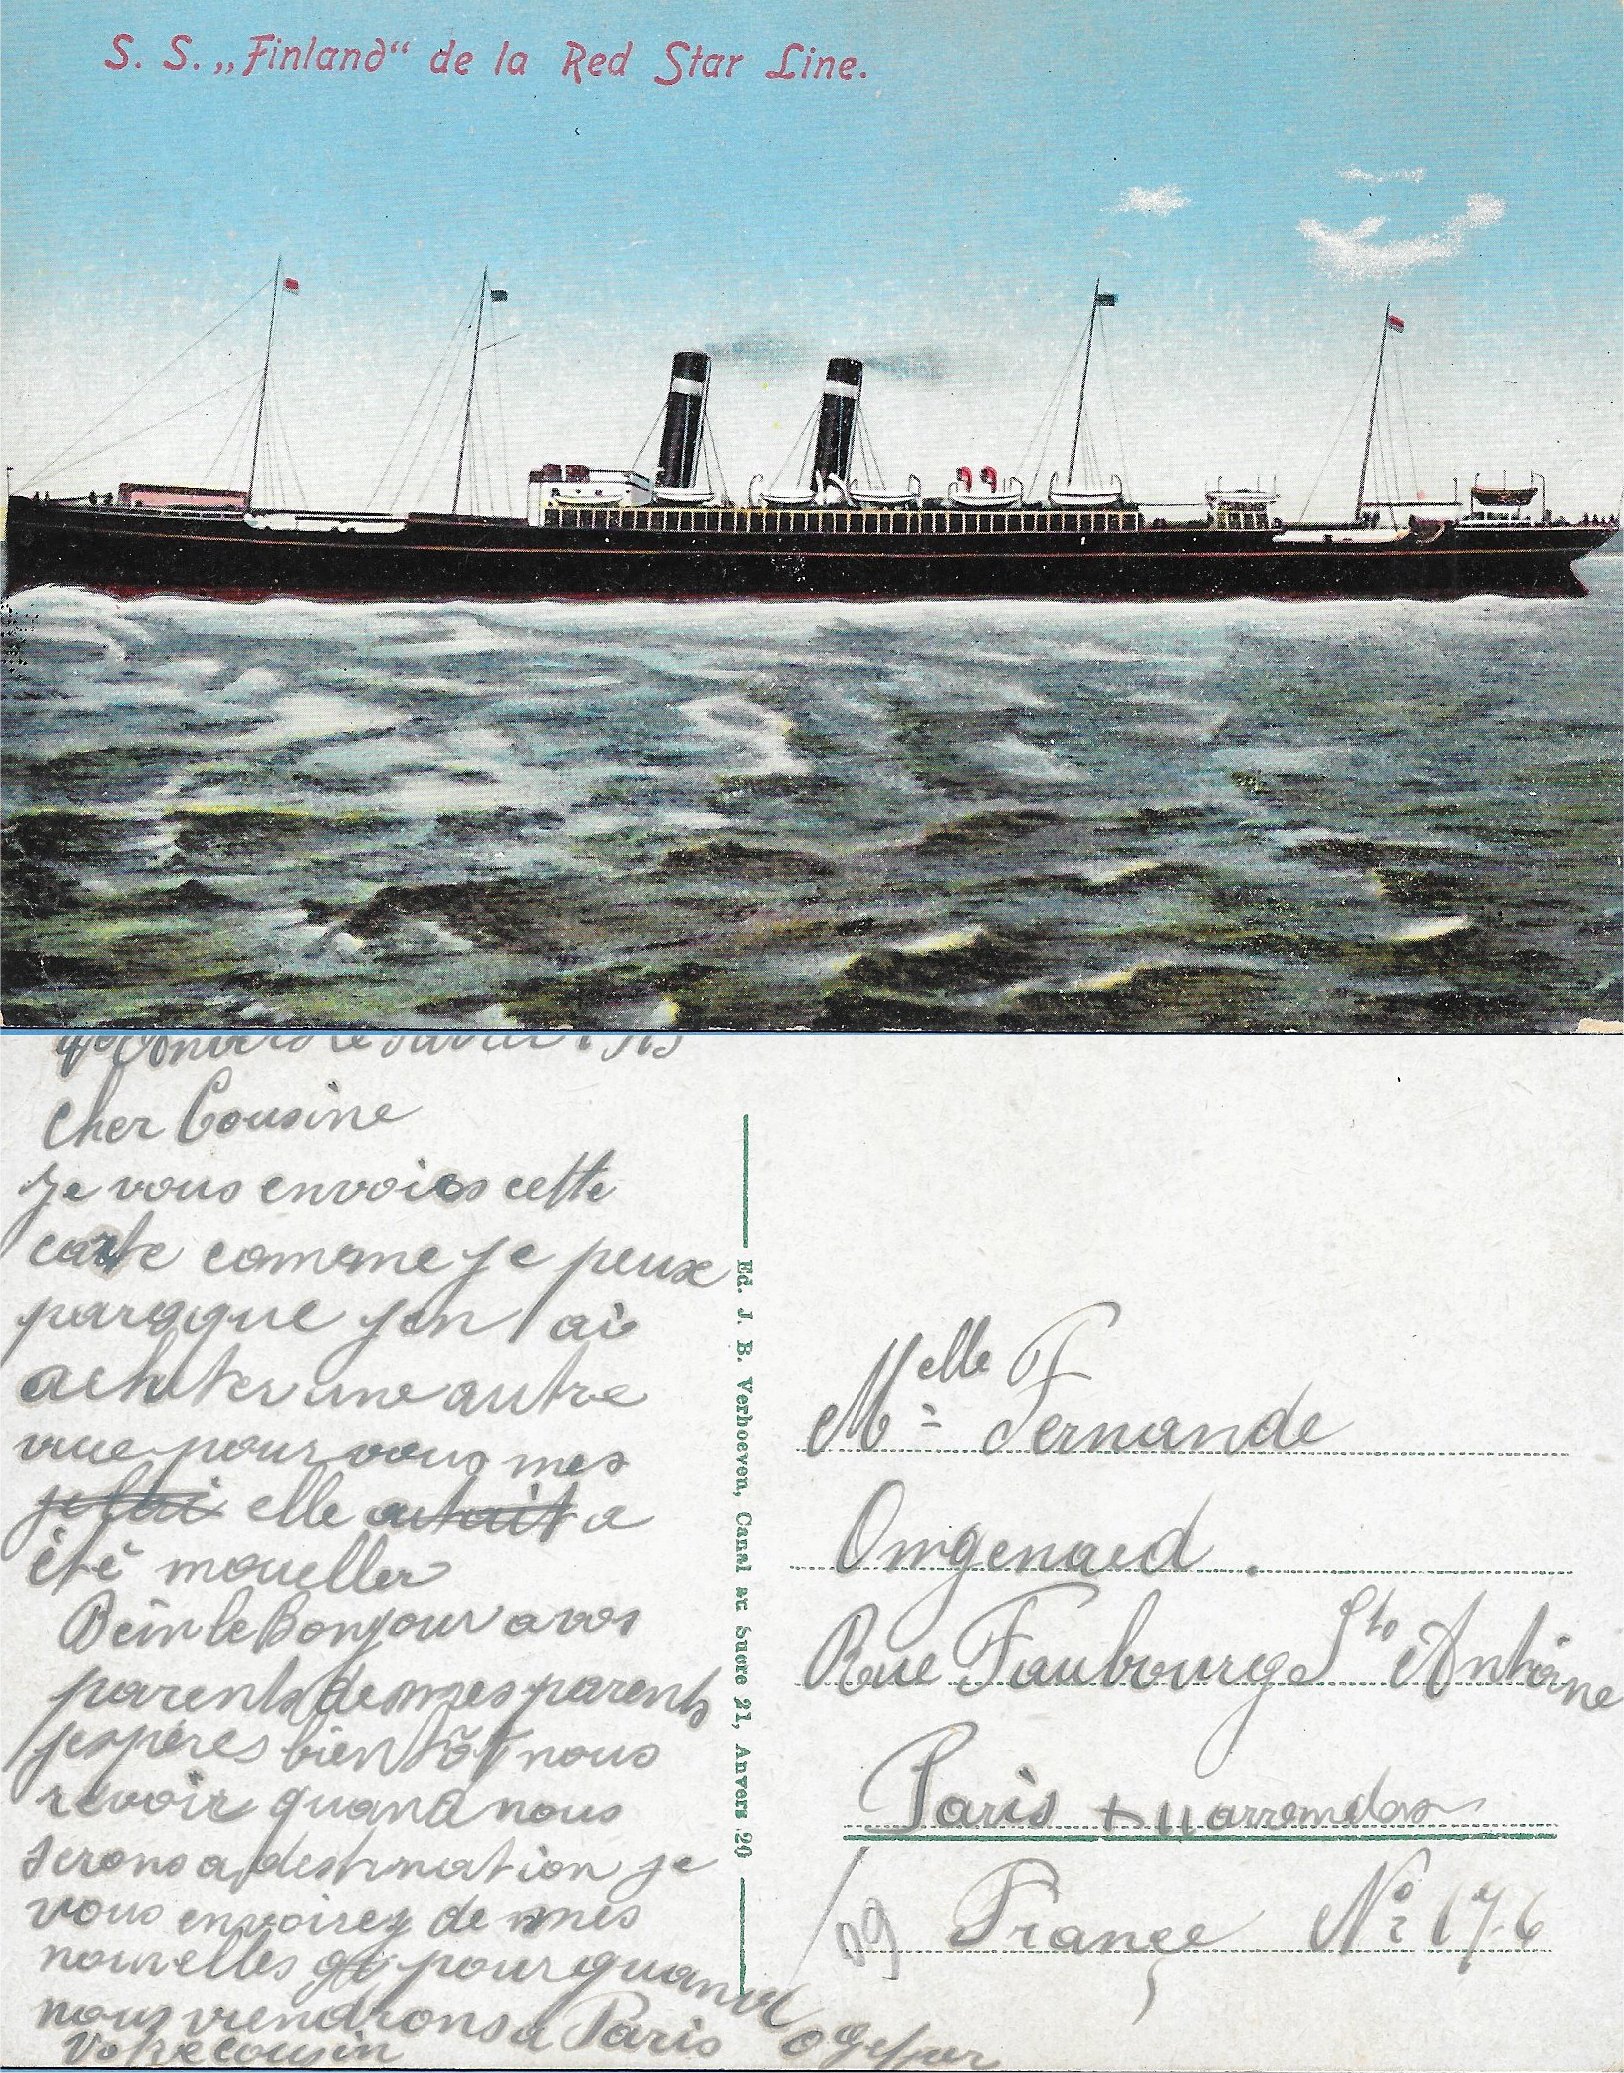 S. S. „Finland“ de la Red Star Line.
le
Cher Cousine
Je vous envoies cette
carte comme je peux
parqque jen ai
acheter une autre
vue pour vous mes
elle a
été moueller
Bein le Bonjour a vos
parents de mes parents
jespéres bientôt nous
revoir quand nous
serons a destination je
vous envoirez de mes
nouvelles pour quand
nous viendrons a Paris
Votre cousin
Ed. J. B. Verhoeven, Canal au Sucre 21, Anvers 20
Melle Fernande
Rue Faubourge Sto Antoine
Paris 11 arromdas
France No 176